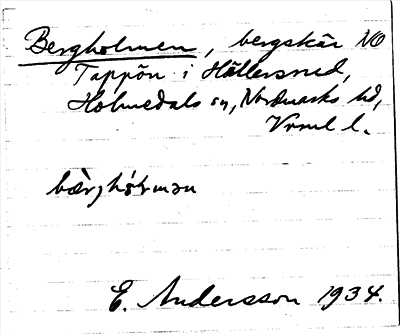 Bergholmen, bergskär NO
Tappön i Hällersrud,
Holmedals sn, Nordmarks hd,
Vrml l.
bærjhɷ̀lmən
E. Andersson 1934.